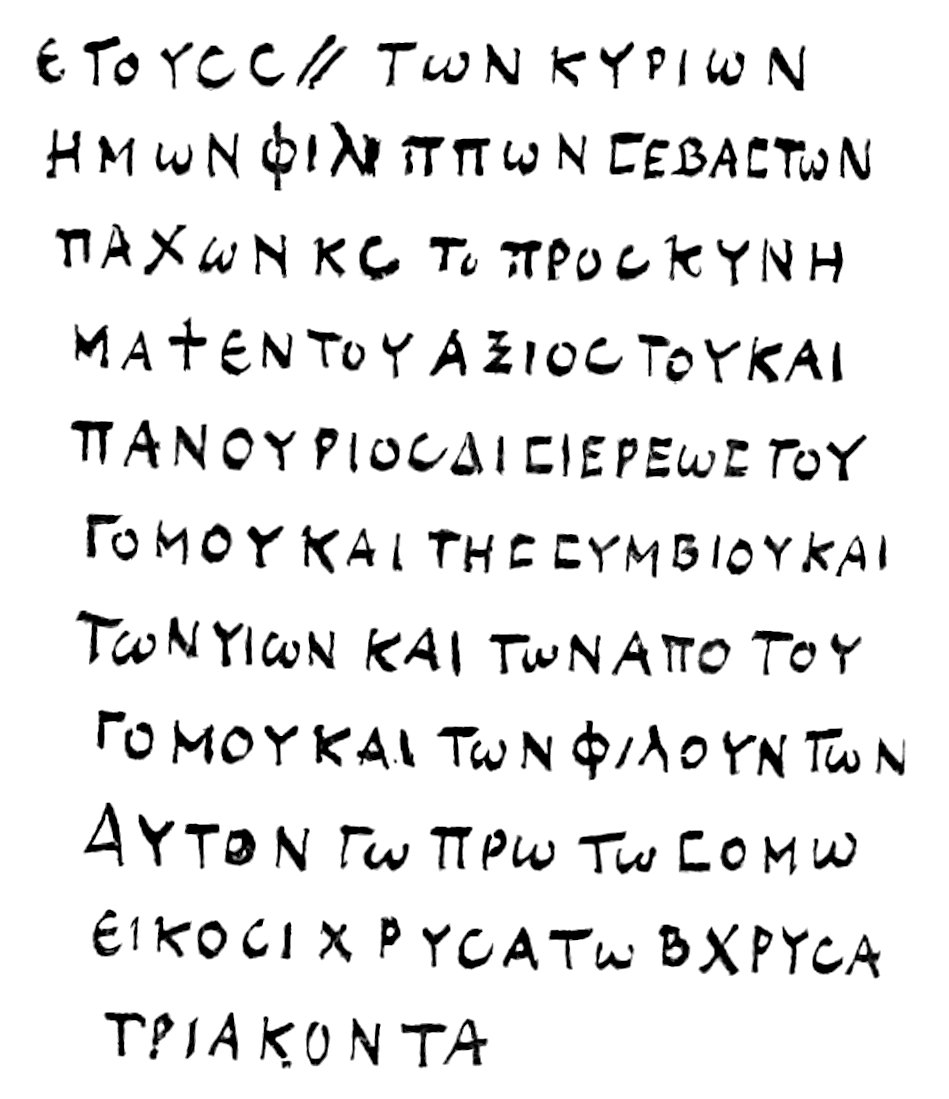 ΕΤΟΥϹ Ϲ// ΤωΝ ΚΥΡΙωΝ
ΗΜωΝ ΦΙΛΙΠΠωΝ ϹΕΒΑϹΤωΝ
ΠΑΧωΝ ΚϹ ΤΟ ΠΡΟϹΚΥΝΗ
ΜΑ ϮΕΝΤΟΥΑΞΙΟϹ ΤΟΥ ΚΑΙ
ΠΑΝΟΥΡΙΟϹ ΔΙϹ ΙΕΡΕωϹ ΤΟΥ
ΓΟΜΟΥ ΚΑΙ ΤΗϹ ϹΥΜΒΙΟΥ ΚΑΙ
ΤωΝ ΥΙωΝ ΚΑΙ ΤωΝ ΑΠΟ ΤΟΥ
ΓΟΜΟΥ ΚΑΙ ΤωΝ ΦΙΛΟΥΝΤωΝ
ΑΥΤΟΝ ΓωΠΡωΤωϹΟΜω
ΕΙΚΟϹΙ ΧΡΥϹΑ Τω Β ΧΡΥϹΑ
ΤΡΙΑΚΟΝΤΑ